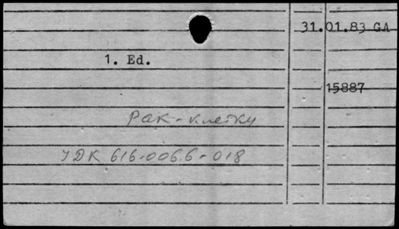 31.01.83 GA
1. Ed.
15887
рак - клетки
УДК 616-006.6-018